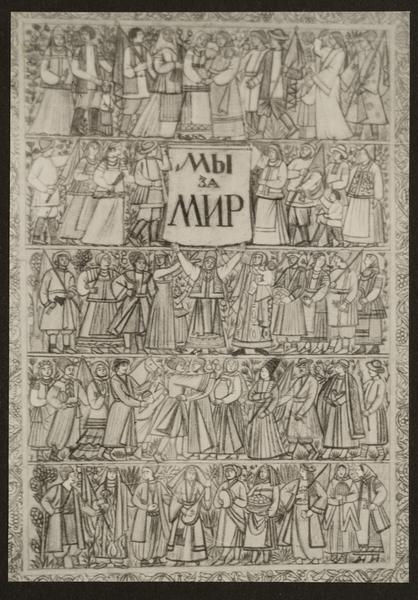 МЫ
ЗА
МИР